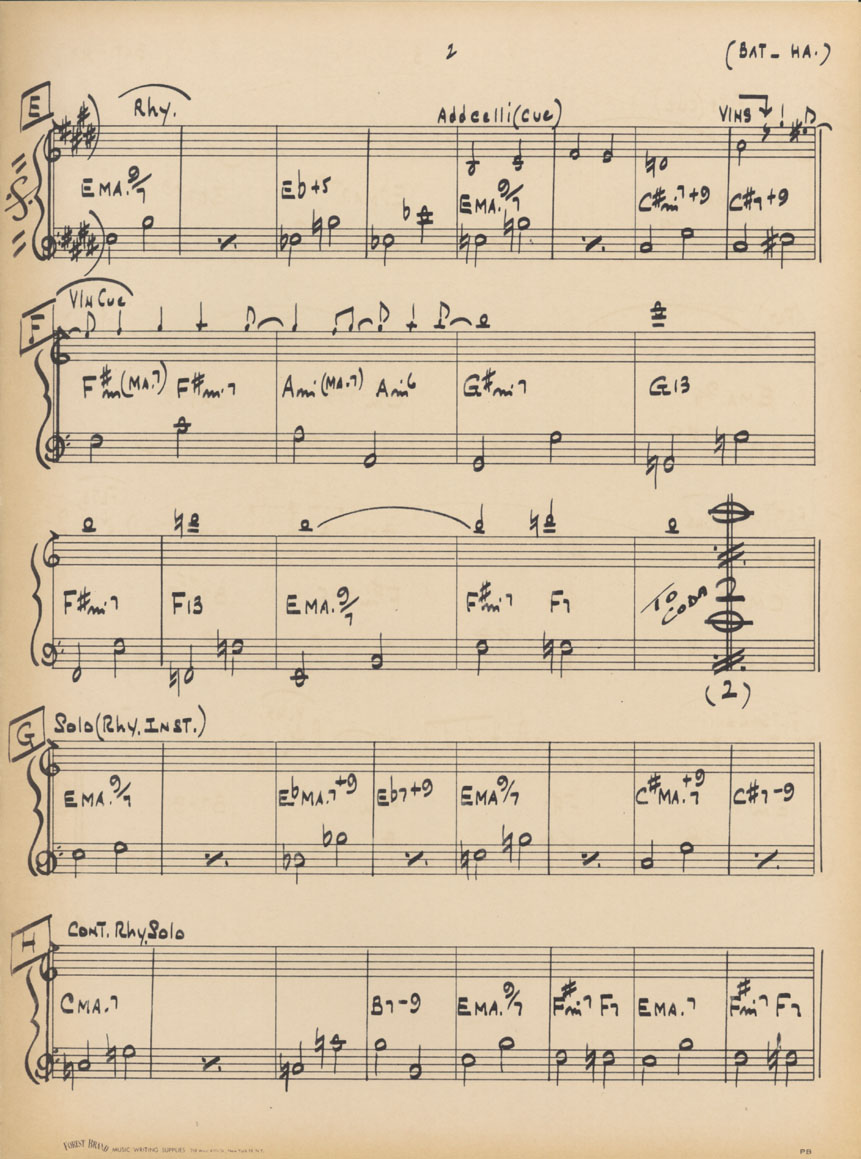 2 (BAT- HA.)
E Rhy. Add celli (cue) VINS
EMA.9/7 Eb+5 EMA.9/7 C#mi7+9 C#7+9
VIN Cue
F
F#mi(MA.7) F#mi7 Ami(MA.7) Ami6 G#mi7 G13
F#mi7 F13 EMA.9/7 F#mi7 F7 TO CODA
(2)
G Solo (Rhy. INST.)
EMA.9/7 EbMA.7+9 Eb7+9 EMA9/7 C#MA.7+9 C#7-9
H CONT. Rhy. Solo
CMA.7 B7-9 EMA.9/7 F#mi7 F7 EMA.7 F#mi7 F7
MUSIC WRITING SUPPLIES
PB